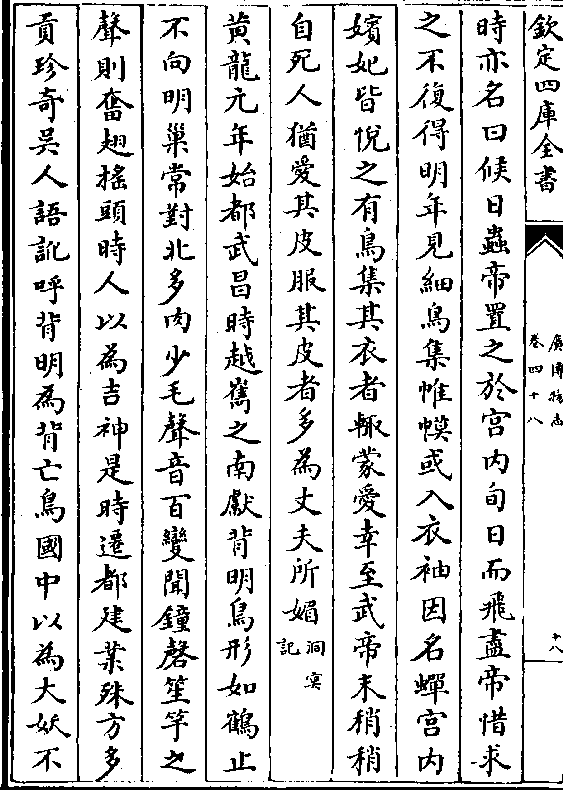 欽定四庫全書
廣博物志
卷四十八
十八
時亦名曰候日蟲帝置之於宫内旬日而飛盡帝惜求
之不復得明年見細鳥集帷幙或入衣袖因名蟬宫内
嬪妃皆悦之有鳥集其衣者輙蒙愛幸至武帝末稍稍
自死人猶愛其皮服其皮者多為丈夫所媚洞㝠記
黄龍元年始都武昌時越嶲之南獻背明鳥形如鶴止
不向明巢常對北多肉少毛聲音百變聞鐘磬笙竽之
聲則奮翅摇頭時人以為吉神是時遷都建業殊方多
貢珍奇吴人語訛呼背明為背亡鳥國中以為大妖不